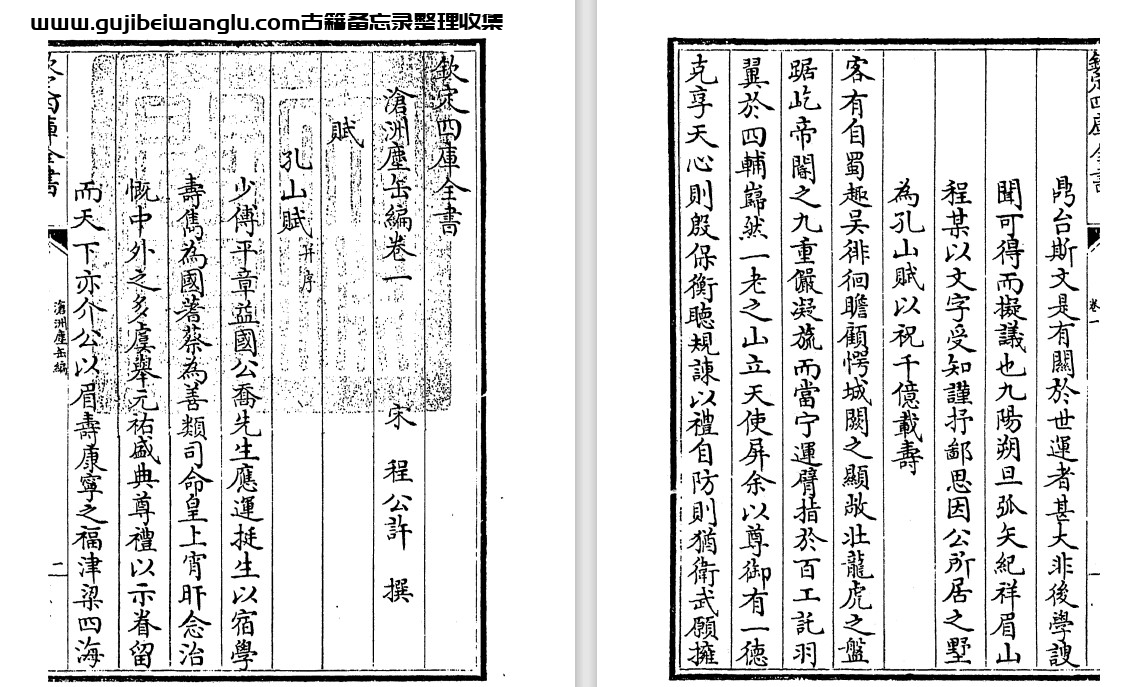 www.gujibeiwanglu.com古籍备忘录整理收集
欽定四庫全書
滄洲塵缶編卷一 宋 程公許 撰
賦
孔山賦 并序
少傅平章益國公喬先生應運挺生以宿學
壽雋為國蓍蔡為善類司命皇上宵旰念治
慨中外之多虞舉元祐盛典尊禮以示眷留
而天下亦介公以眉壽康寧之福津梁四海
欽定四庫全書 滄洲塵缶編 二
欽定四庫全書 卷一 一
鼎台斯文是有關於世運者甚大非後學謏
聞可得而擬議也九陽朔旦弧矢紀祥眉山
程某以文字受知謹抒鄙思因公所居之墅
為孔山賦以祝千億載壽
客有自蜀趣吳徘徊瞻顧愕城闕之顯敞壯龍虎之盤
踞屹帝閽之九重儼凝旒而當宁運臂指於百工託羽
翼於四輔巋然一老之山立天使屏余以尊御有一德
克享天心則殷保衡聽規諫以禮自防則猶衛武願擁